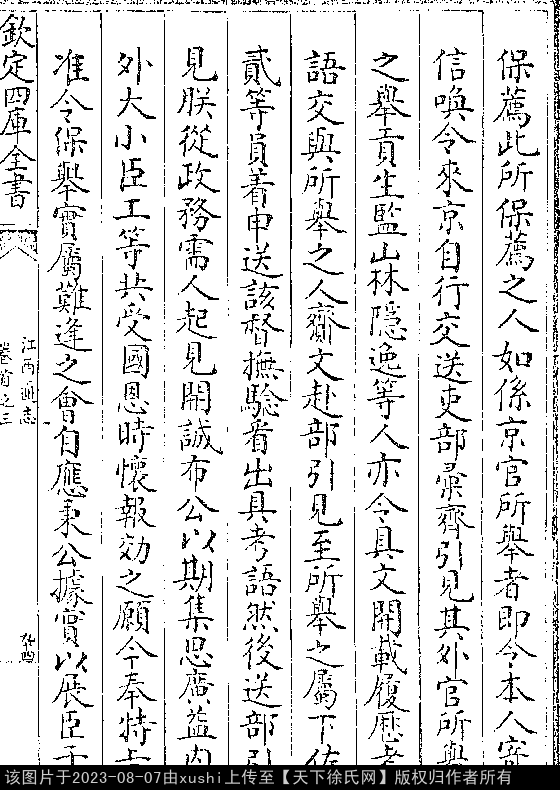 保薦此所保薦之人如係京官所舉者即令本人寄
信喚令來京自行交送吏部彚齊引見其外官所舉
之舉貢生監山林隱逸等人亦令具文開載履歷考
語交與所舉之人齎文赴部引見至所舉之屬下佐
貳等員着申送該督撫驗看出具考語然後送部引
見朕從政務需人起見開誠布公以期集思廣益内
外大小臣工等共受國恩時懷報効之願今奉特
准令保舉實屬難逢之會自應秉公據實以展臣
欽定四庫全書
江西通志
卷首之三
该图片于2023-08-07由xushi上传至【天下徐氏网】版权归作者所有